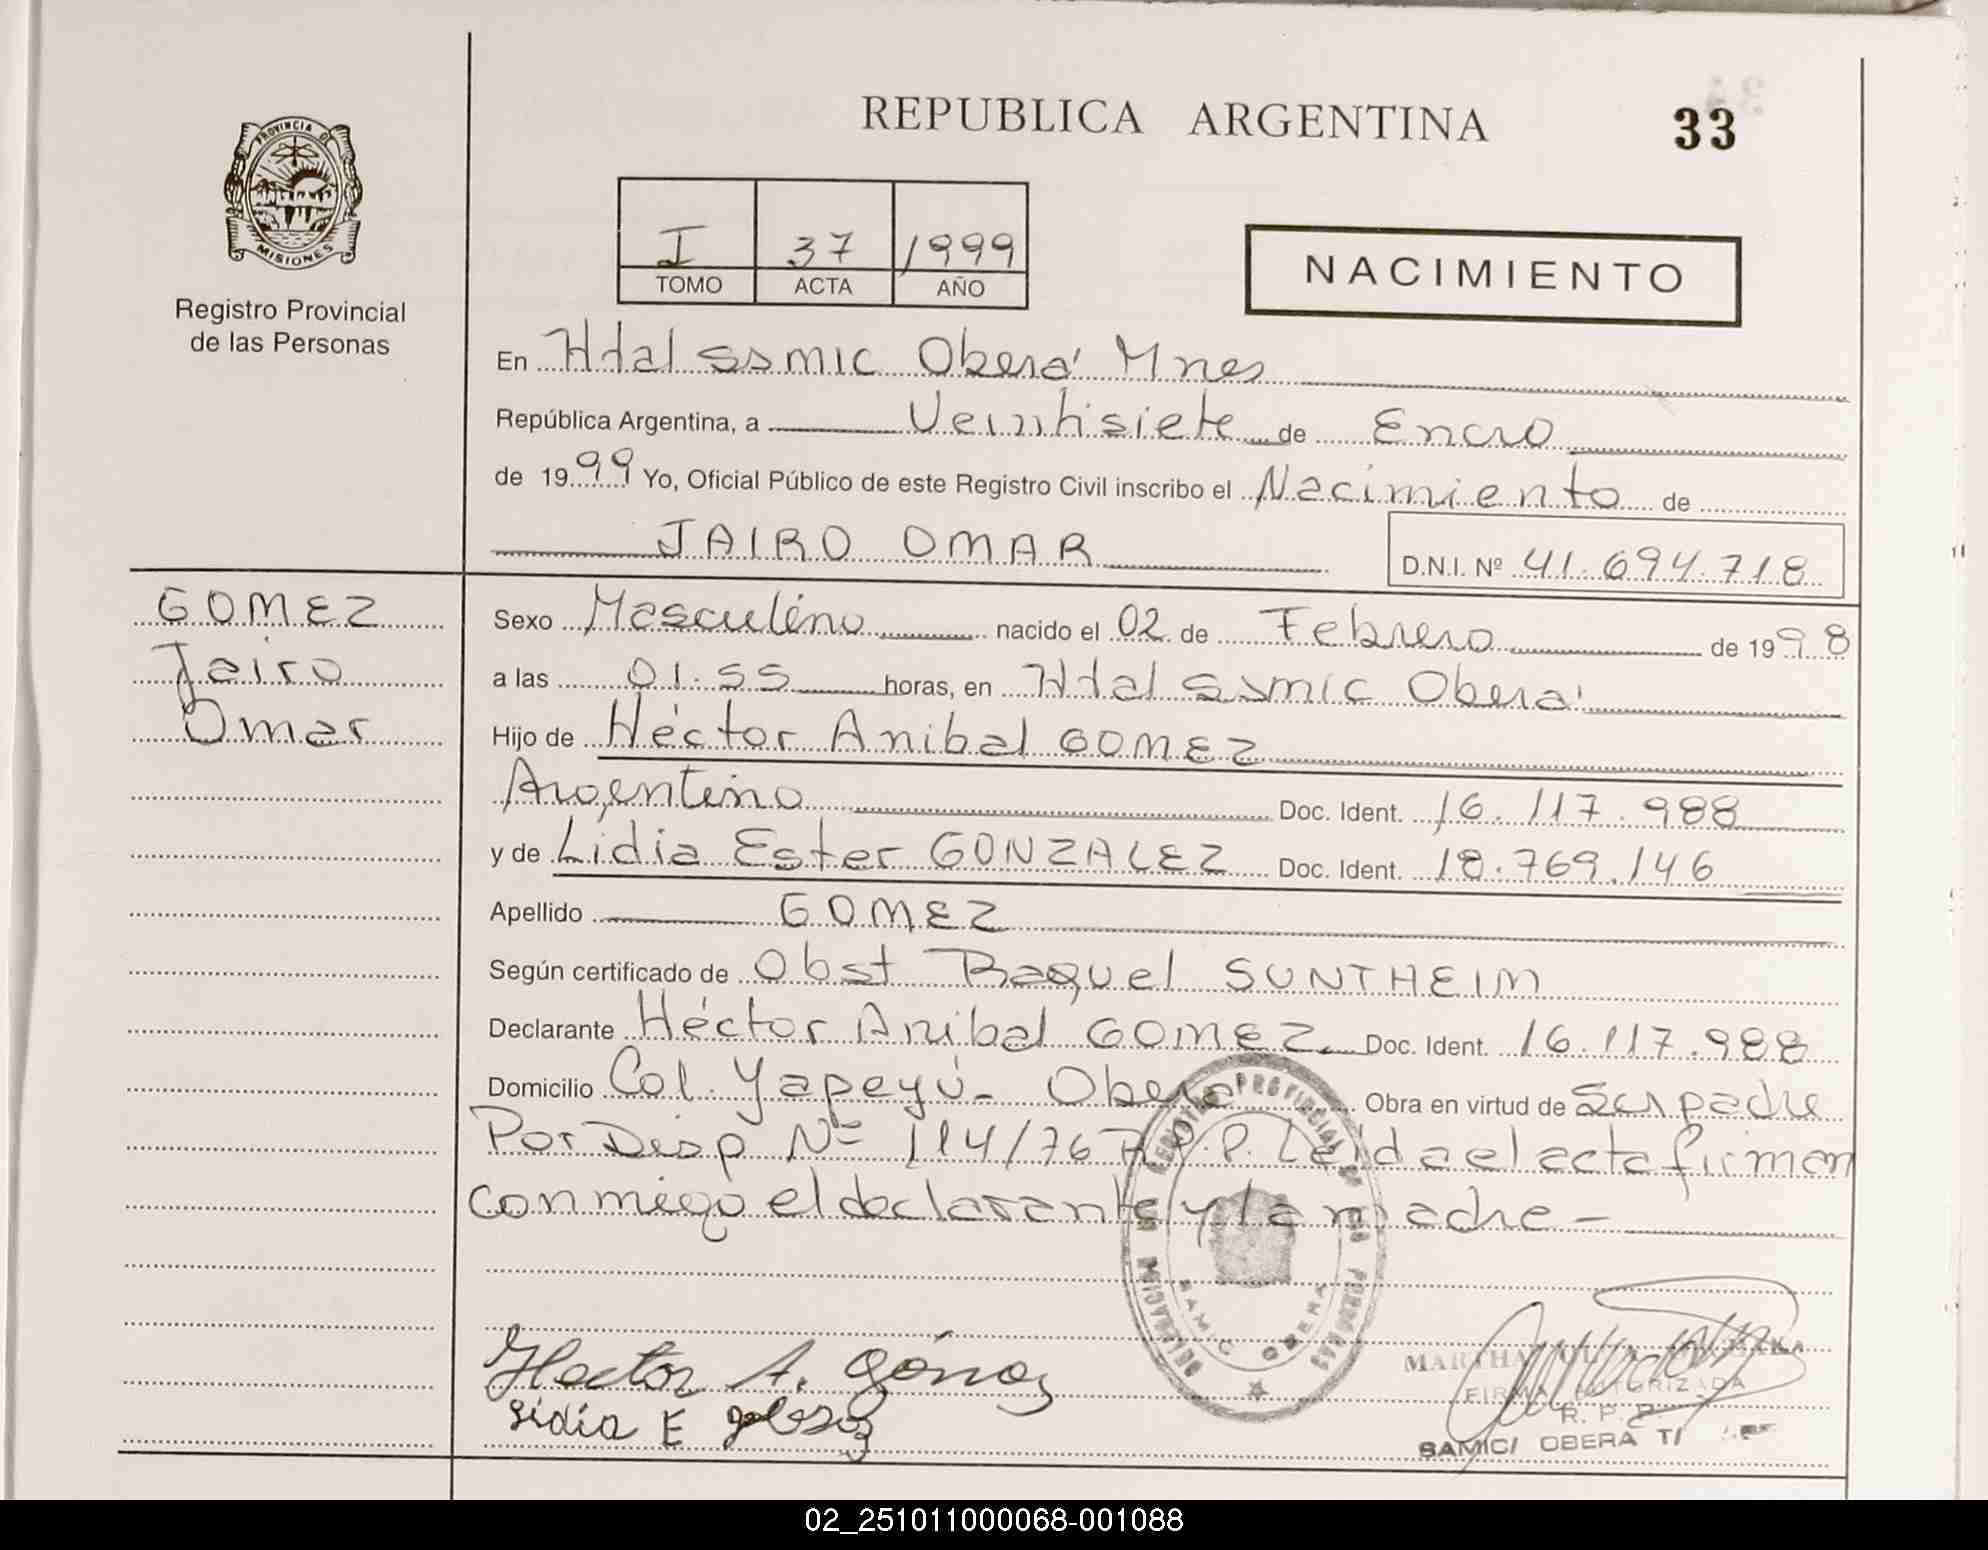 REPUBLICA ARGENTINA
33
PROVINCIA DE
MISIONES
Registro Provincial
de las Personas
I 37 1999
TOMO ACTA AÑO
NACIMIENTO
En Htal SSMIC Oberá Mnes
República Argentina, a Veintisiete de Enero
de 1999 Yo, Oficial Público de este Registro Civil inscribo el Nacimiento de
JAIRO OMAR
D.N.I. Nº 41.694.718
GOMEZ
Jairo
Omar
Sexo Masculino nacido el 02 de Febrero de 1998
a las 01.55 horas, en Htal SSMIC Oberá
Hijo de Héctor Anibal GOMEZ
Argentino Doc. Ident. 16.117.988
y de Lidia Ester GONZALEZ Doc. Ident. 18.769.146
Apellido GOMEZ
Según certificado de Obst Raquel SUNTHEIM
Declarante Héctor Anibal GOMEZ Doc. Ident. 16.117.988
Domicilio Col. Yapeyú - Oberá Obra en virtud de Ser padre
Por Disp Nº 114/76 R.P.P. Leída el acta firman
conmigo el declarante y la madre -
REGISTRO PROVINCIAL DE LAS PERSONAS
DELEGACION
SAMIC OBERA
Hector A. Gómez
Lidia E
MARTHA
FIRMA AUTORIZADA
R. P. P.
SAMIC/ OBERA T/
02_251011000068-001088